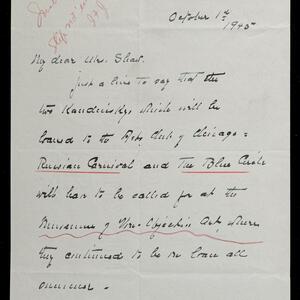 October 1st
1945
My dear Mrs. Shaw.
Just a line to say that the
two Kandinskys which will be
loaned to the Arts Club of Chicago =
Russian Carnival and The Blue Circle
will have to be called for at the
Museum of Non-Objective Art, where
they continued to be on loan all
summer -